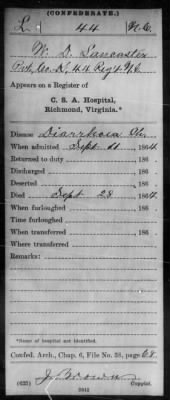 (CONFEDERATE.)
L 44 N.C.
W. D. Lancaster
Pvt, Co. D, 44 Reg't N.C.
Appears on a Register of
C. S. A. Hospital,
Richmond, Virginia.*
Disease Diarrhoea Ch.
When admitted Sept 11, 1864
Returned to duty 186
Discharged 186
Deserted 186
Died Sept 28 1864
When furloughed 186
Time furloughed
When transferred 186
Where transferred
Remarks:
*Name of hospital not identified.
Confed. Arch., Chap. 6, File No. 38, page 68
J Brown
(635) Copyist.